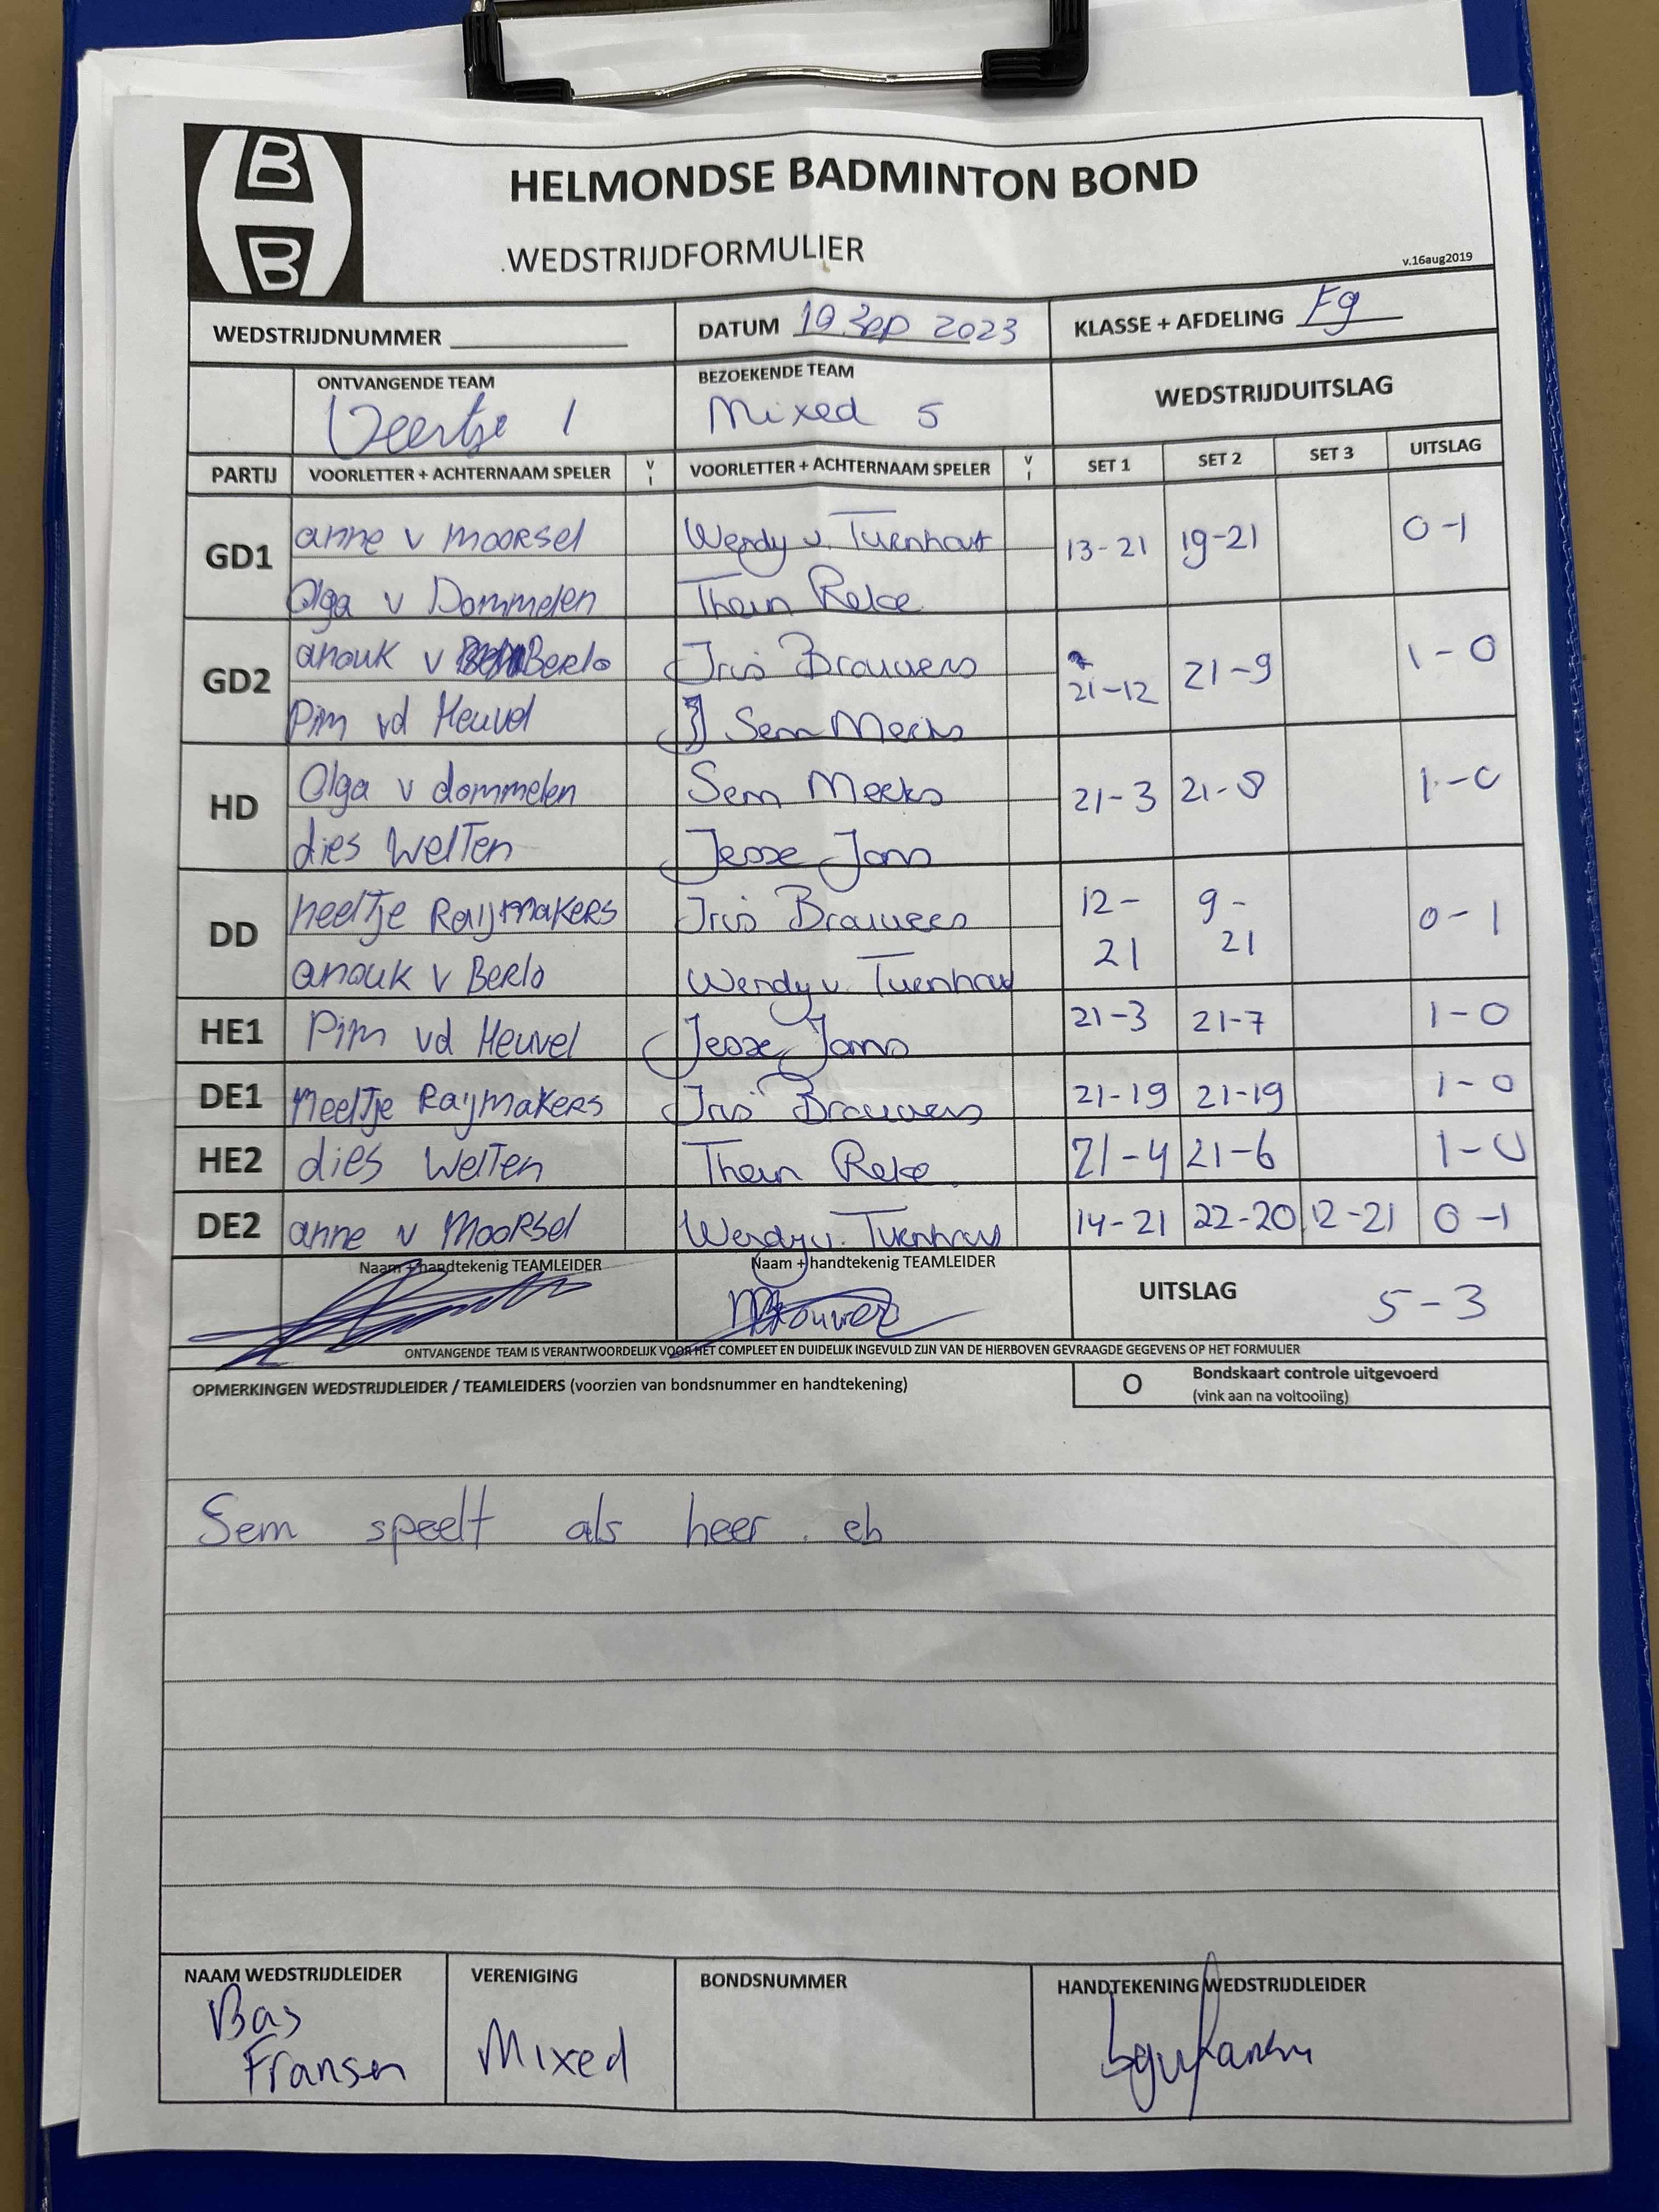 B
B
HELMONDSE BADMINTON BOND
.WEDSTRIJDFORMULIER
v.16aug2019
WEDSTRIJDNUMMER DATUM 19 Sep 2023 KLASSE + AFDELING Fg
ONTVANGENDE TEAM BEZOEKENDE TEAM WEDSTRIJDUITSLAG
Veertje 1 Mixed 5
PARTIJ VOORLETTER + ACHTERNAAM SPELER V I VOORLETTER + ACHTERNAAM SPELER V I SET 1 SET 2 SET 3 UITSLAG
GD1 anne v Moorsel Wendy v. Turnhout 13-21 19-21 0-1
Olga v Dommelen Thein Reke
GD2 anouk v Berlo Iris Brouwers 21-12 21-9 1-0
Pim vd Heuvel Sem Meeks
HD Olga v dommelen Sem Meeks 21-3 21-8 1-0
dies Welten Jesse Jans
DD neeltje Raijmakers Iris Brouwers 12-21 9-21 0-1
anouk v Berlo Wendy v. Turnhout
HE1 Pim vd Heuvel Jesse Jans 21-3 21-7 1-0
DE1 Neeltje Raijmakers Iris Brouwers 21-19 21-19 1-0
HE2 dies Welten Thein Reke 21-4 21-6 1-0
DE2 anne v Moorsel Wendy v. Turnhout 14-21 22-20 12-21 0-1
Naam + handtekenig TEAMLEIDER Naam + handtekenig TEAMLEIDER UITSLAG 5-3
Brouwer
ONTVANGENDE TEAM IS VERANTWOORDELIJK VOOR HET COMPLEET EN DUIDELIJK INGEVULD ZIJN VAN DE HIERBOVEN GEVRAAGDE GEGEVENS OP HET FORMULIER
OPMERKINGEN WEDSTRIJDLEIDER / TEAMLEIDERS (voorzien van bondsnummer en handtekening) O Bondskaart controle uitgevoerd
(vink aan na voltooiing)
Sem speelt als heer. eb
NAAM WEDSTRIJDLEIDER VERENIGING BONDSNUMMER HANDTEKENING WEDSTRIJDLEIDER
Bas
Fransen Mixed